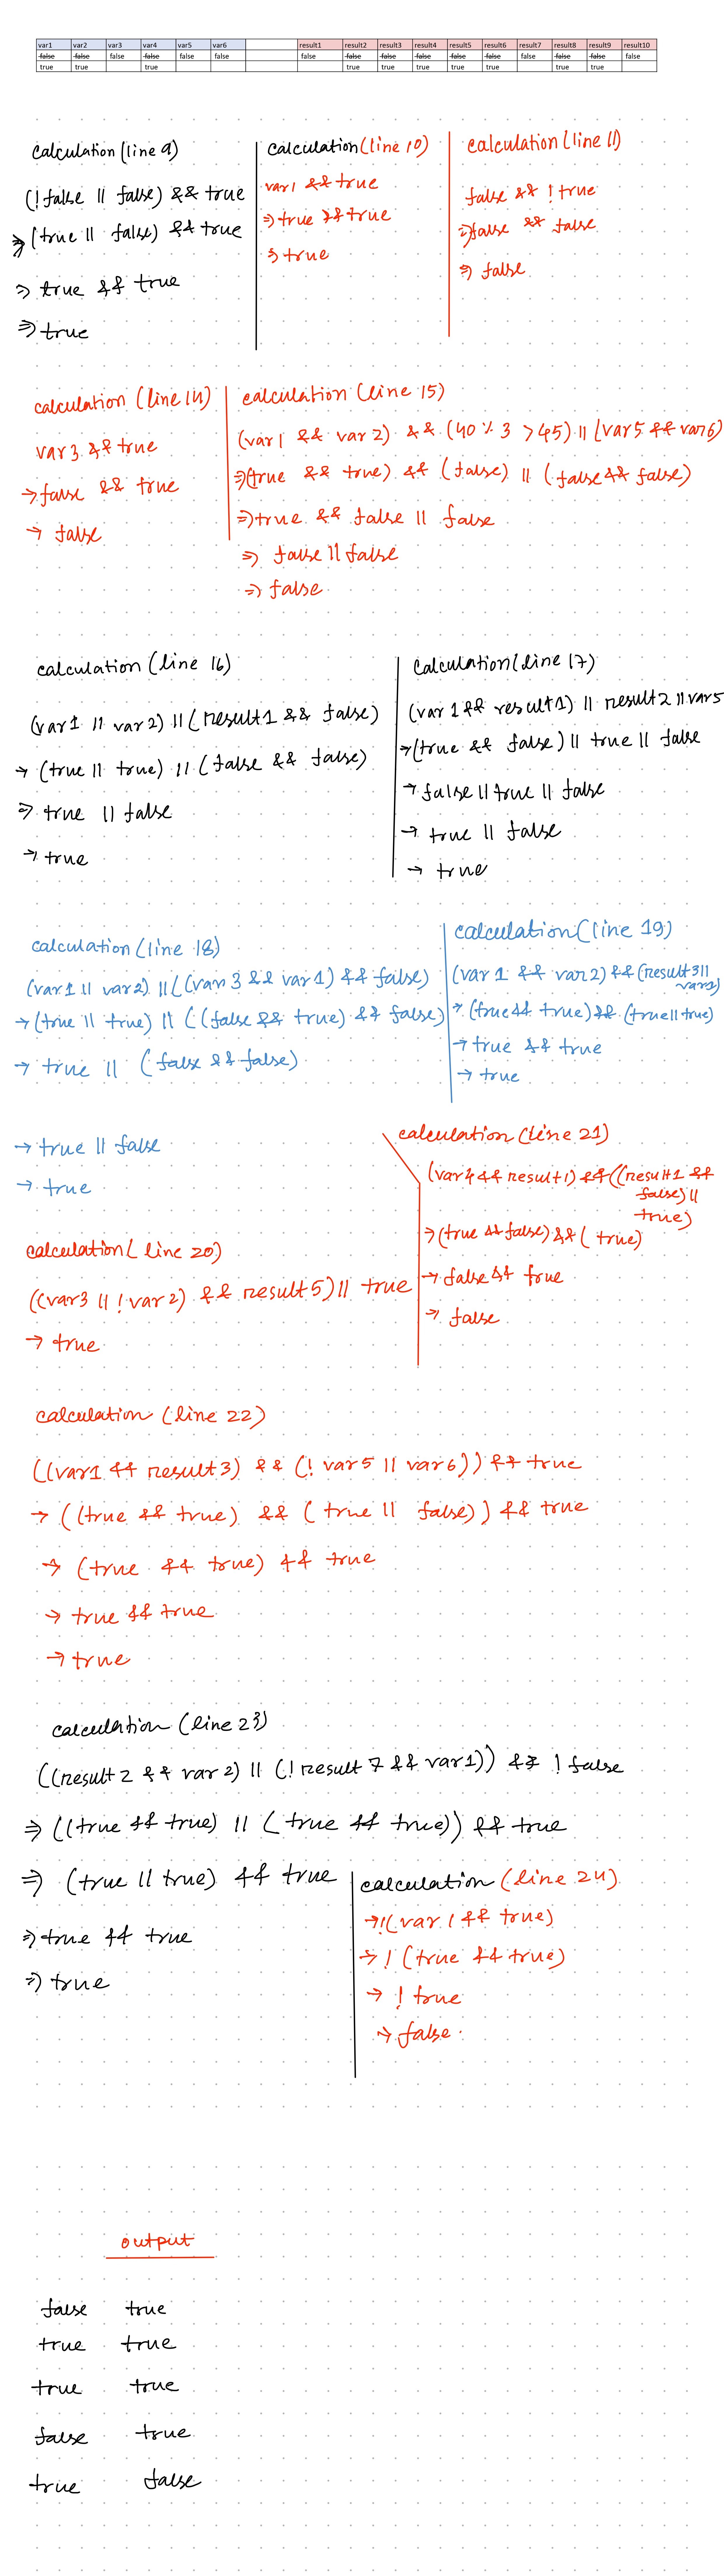 var1 var2 var3 var4 var5 var6 result1 result2 result3 result4 result5 result6 result7 result8 result9 result10
false false false false false false false false false false false false false false false false
true true true true true true true true true true true
calculation (line 9)
(! false || false) && true
⇒ (true || false) && true
⇒ true && true
⇒ true
calculation (line 10)
var1 && true
⇒ true && true
⇒ true
calculation (line 11)
false && ! true
⇒ false && false
⇒ false
calculation (line 14)
var 3 && true
→ false && true
→ false
calculation (line 15)
(var1 && var 2) && (40 % 3 > 45) || (var5 && var6)
⇒ (true && true) && (false) || (false && false)
⇒ true && false || false
⇒ false || false
⇒ false
calculation (line 16)
(var1 || var2) || (result1 && false)
→ (true || true) || (false && false)
⇒ true || false
→ true
calculation (line 17)
(var 1 && result1) || result2 || var5
→ (true && false) || true || false
→ false || true || false
→ true || false
→ true
calculation (line 18)
(var1 || var2) || ((var 3 && var1) && false)
→ (true || true) || ((false && true) && false)
→ true || (false && false)
→ true || false
→ true
calculation (line 19)
(var 1 && var2) && (result3 ||
var1)
→ (true && true) && (true || true)
→ true && true
→ true
calculation (line 20)
((var3 || ! var 2) && result5) || true
→ true
calculation (line 21)
(var4 && result1) && ((result1 &&
false) ||
true)
⇒ (true && false) && (true)
→ false && true
→ false
calculation (line 22)
((var1 && result3) && (! var5 || var6)) && true
→ ((true && true) && (true || false)) && true
→ (true && true) && true
→ true && true
→ true
calculation (line 23)
((result 2 && var 2) || (! result 7 && var1)) && ! false
⇒ ((true && true) || (true && true)) && true
⇒ (true || true) && true
⇒ true && true
⇒ true
calculation (line 24)
→ !(var 1 && true)
→ ! (true && true)
→ ! true
→ false
output
false true
true true
true true
false true
true false